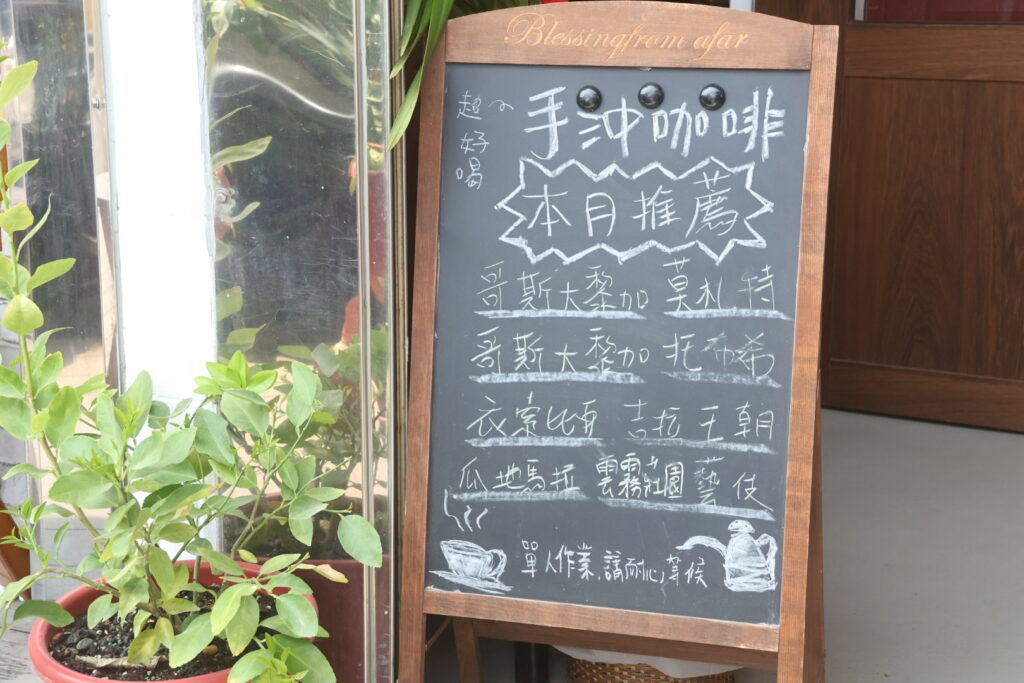 Blessingfrom afar
超好喝
手沖咖啡
本月推薦
哥斯大黎加 莫札特
哥斯大黎加 托布希
衣索比亞 吉拉王朝
瓜地馬拉 雲霧莊園 藝伎
單人作業,請耐心等候